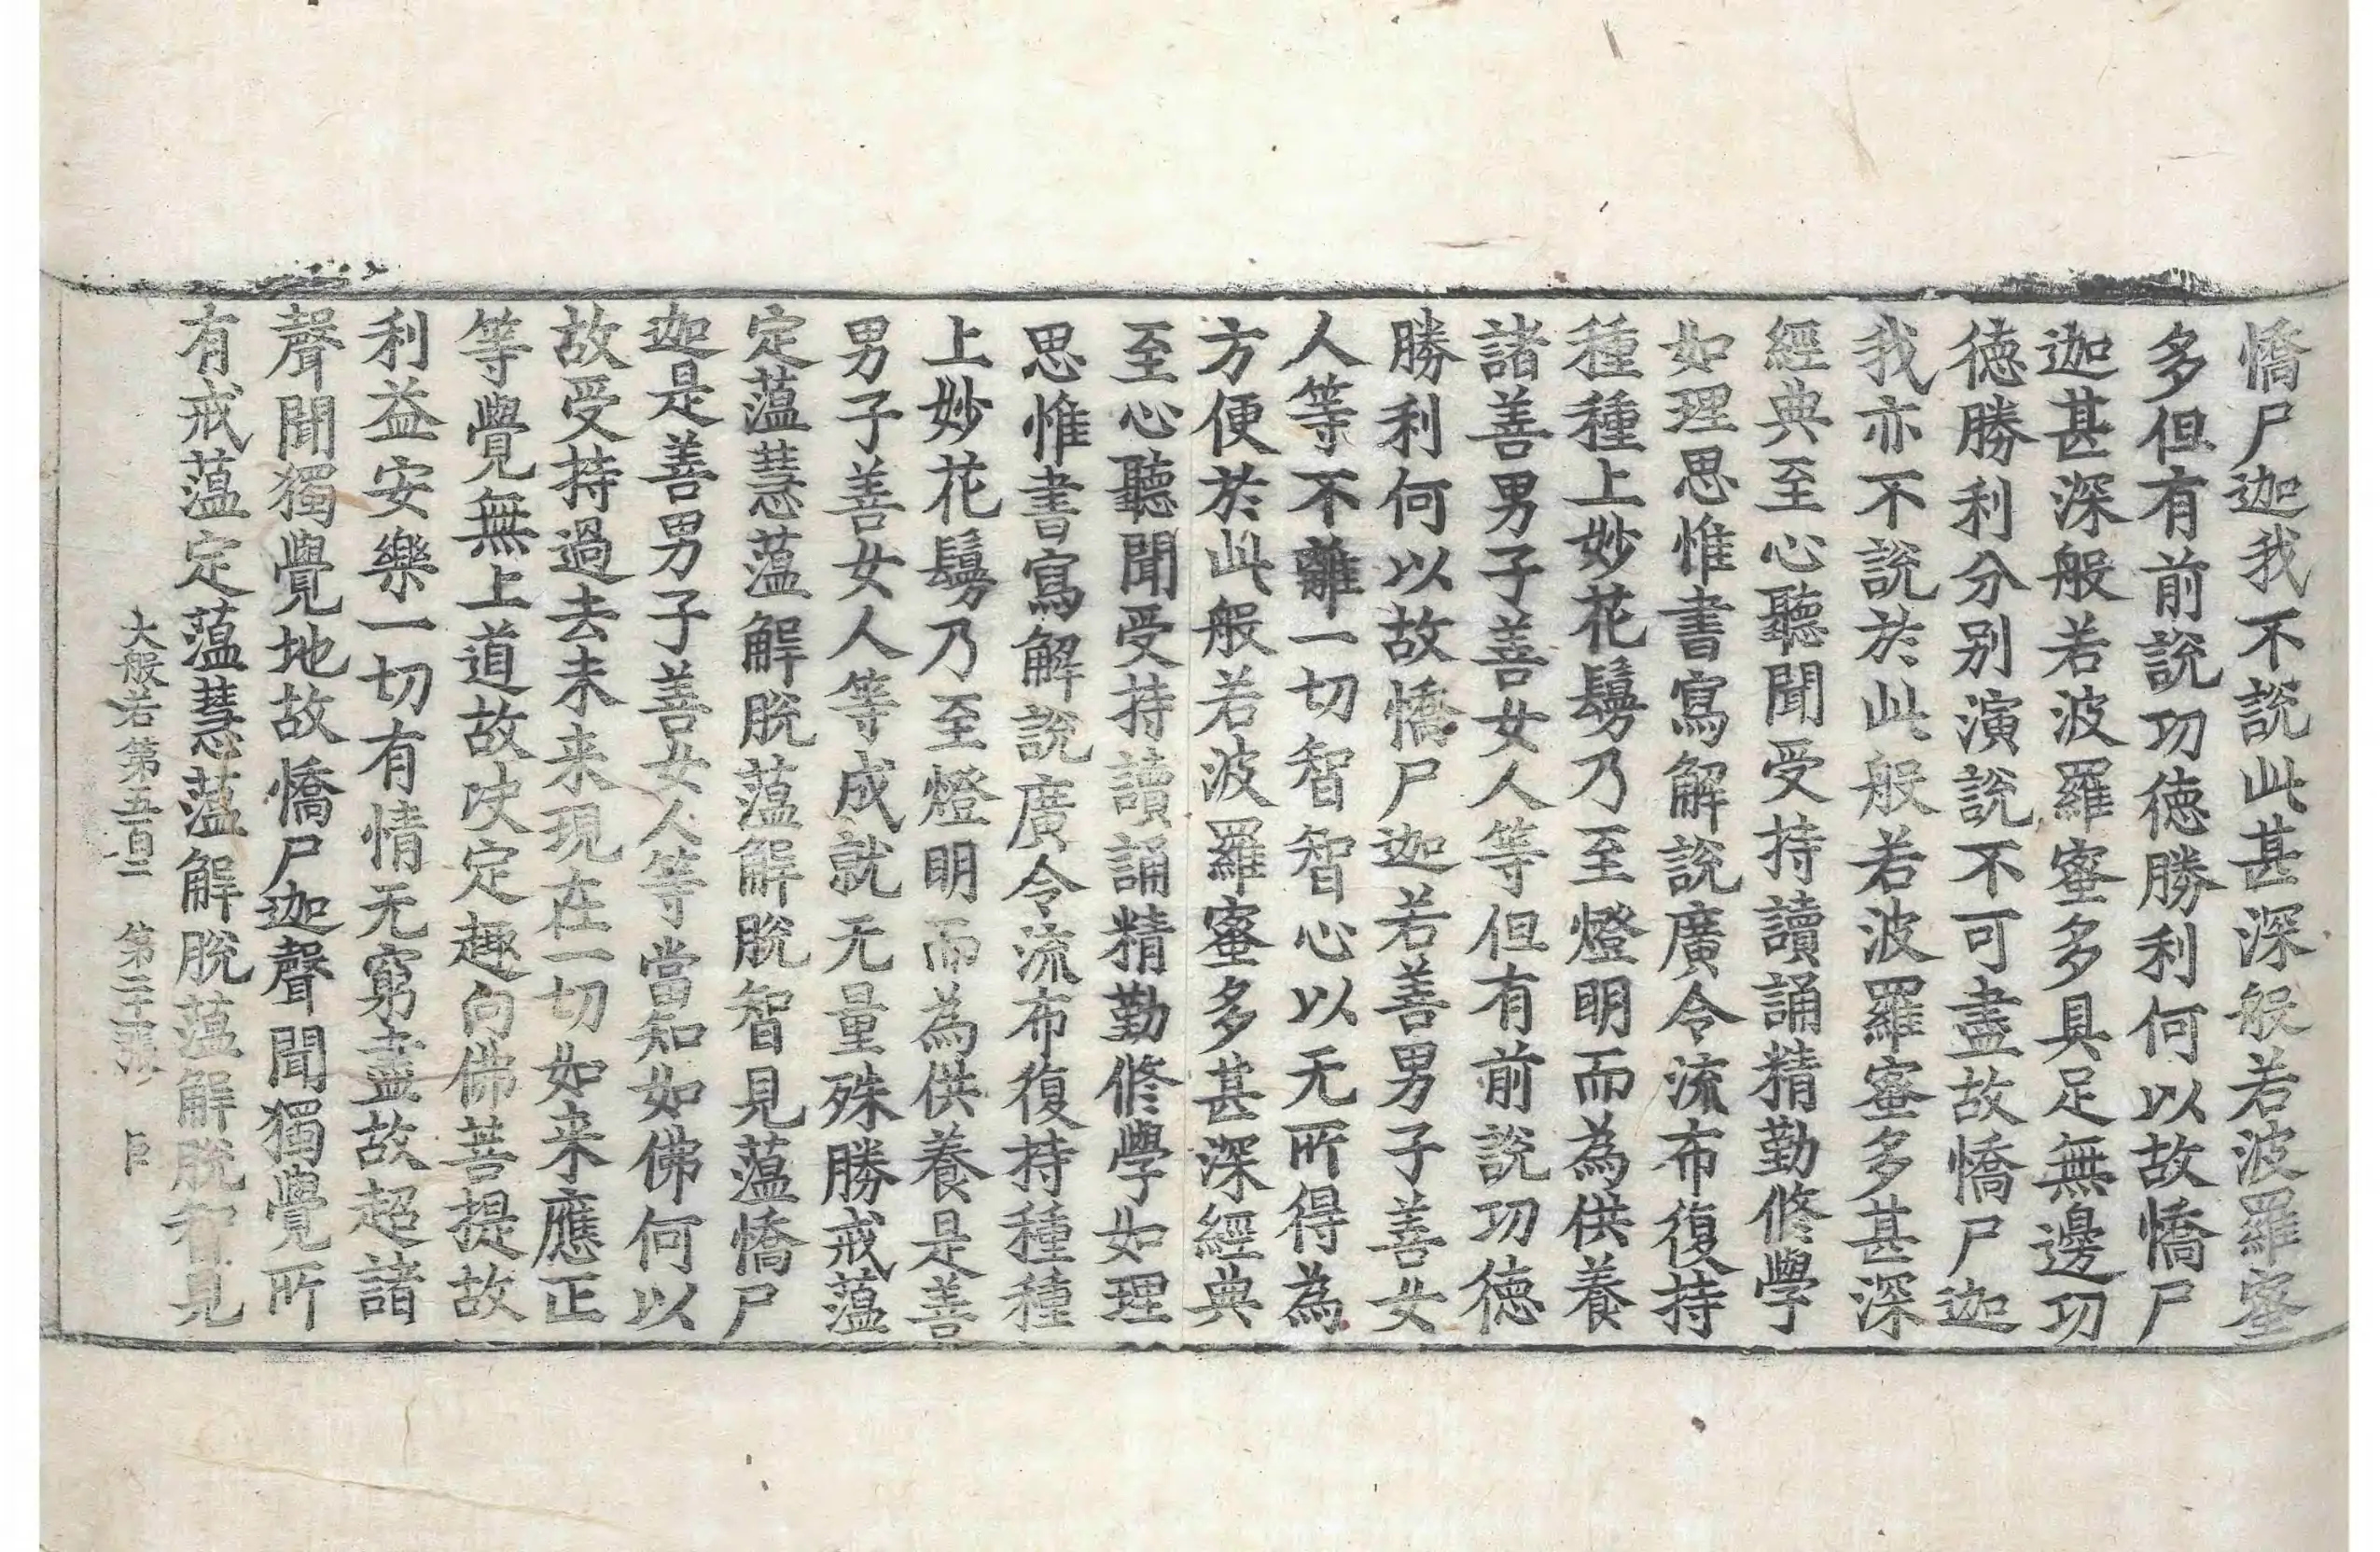 憍尸迦我不說此甚深般若波羅蜜
多但有前說功德勝利何以故憍尸
迦甚深般若波羅蜜多具足無邊功
德勝利分别演說不可盡故憍尸迦
我亦不說於此般若波羅蜜多甚深
經典至心聽聞受持讀誦精勤修學
如理思惟書寫解說廣令流布復持
種種上妙花鬘乃至燈明而為供養
諸善男子善女人等但有前說功德
勝利何以故憍尸迦若善男子善女
人等不離一切智智心以无所得為
方便於此般若波羅蜜多甚深經典
至心聽聞受持讀誦精勤修學如理
思惟書寫解說廣令流布復持種種
上妙花鬘乃至燈明而為供養是善
男子善女人等成就无量殊勝戒蘊
定蘊慧蘊解脫蘊解脫智見蘊憍尸
迦是善男子善女人等當知如佛何以
故受持過去未来現在一切如来應正
等覺無上道故决定趣向佛菩提故
利益安樂一切有情无窮盡故超諸
聲聞獨覺地故憍尸迦聲聞獨覺所
有戒蘊定蘊慧蘊解脫蘊解脫智見
大般若第五百二 第二十張